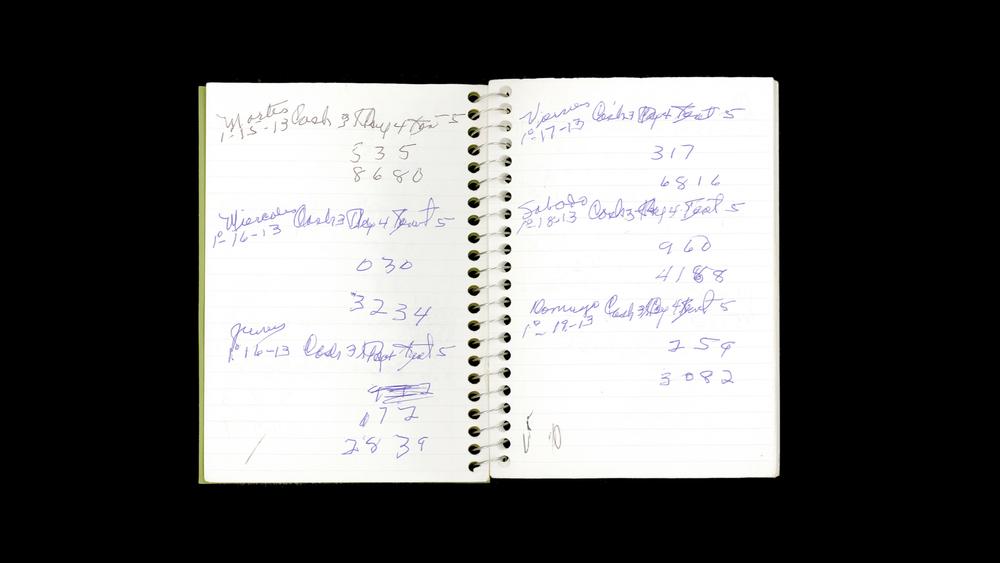 Martes Cash 3 Play 4 Fant 5
1-15-13
535
8680
Miercoles Cash 3 Play 4 Fant 5
1-16-13
030
3234
Jueves
1-16-13 Cash 3 Play 4 Fant 5
072
2839
Viernes Cash 3 Play 4 Fant 5
1-17-13
317
6816
Sabado Cash 3 Play 4 Fant 5
1-18-13
960
4188
Domingo Cash 3 Play 4 Fant 5
1-19-13
259
3082